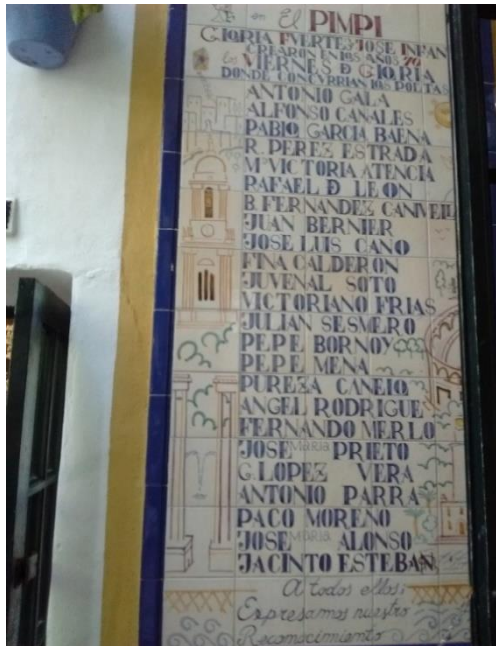 en El PIMPI
GLORIA FUERTES JOSE INFAN
CREARON EN LOS AÑOS 70
los VIERNES D GLORIA
DONDE CONCURRIAN LOS POETAS
ANTONIO GALA
ALFONSO CANALES
PABLO GARCIA BAENA
R. PEREZ ESTRADA
Mª VICTORIA ATENCIA
RAFAEL D LEON
B. FERNANDEZ CANIVELL
JUAN BERNIER
JOSE LUIS CANO
FINA CALDERON
JUVENAL SOTO
VICTORIANO FRIAS
JULIAN SESMERO
PEPE BORNOY
PEPE MENA
PUREZA CANELO
ANGEL RODRIGUE
FERNANDO MERLO
JOSE MARIA PRIETO
G. LOPEZ VERA
ANTONIO PARRA
PACO MORENO
JOSE MARIA ALONSO
JACINTO ESTEBAN
A todos ellos:
Expresamos nuestro
Reconocimiento